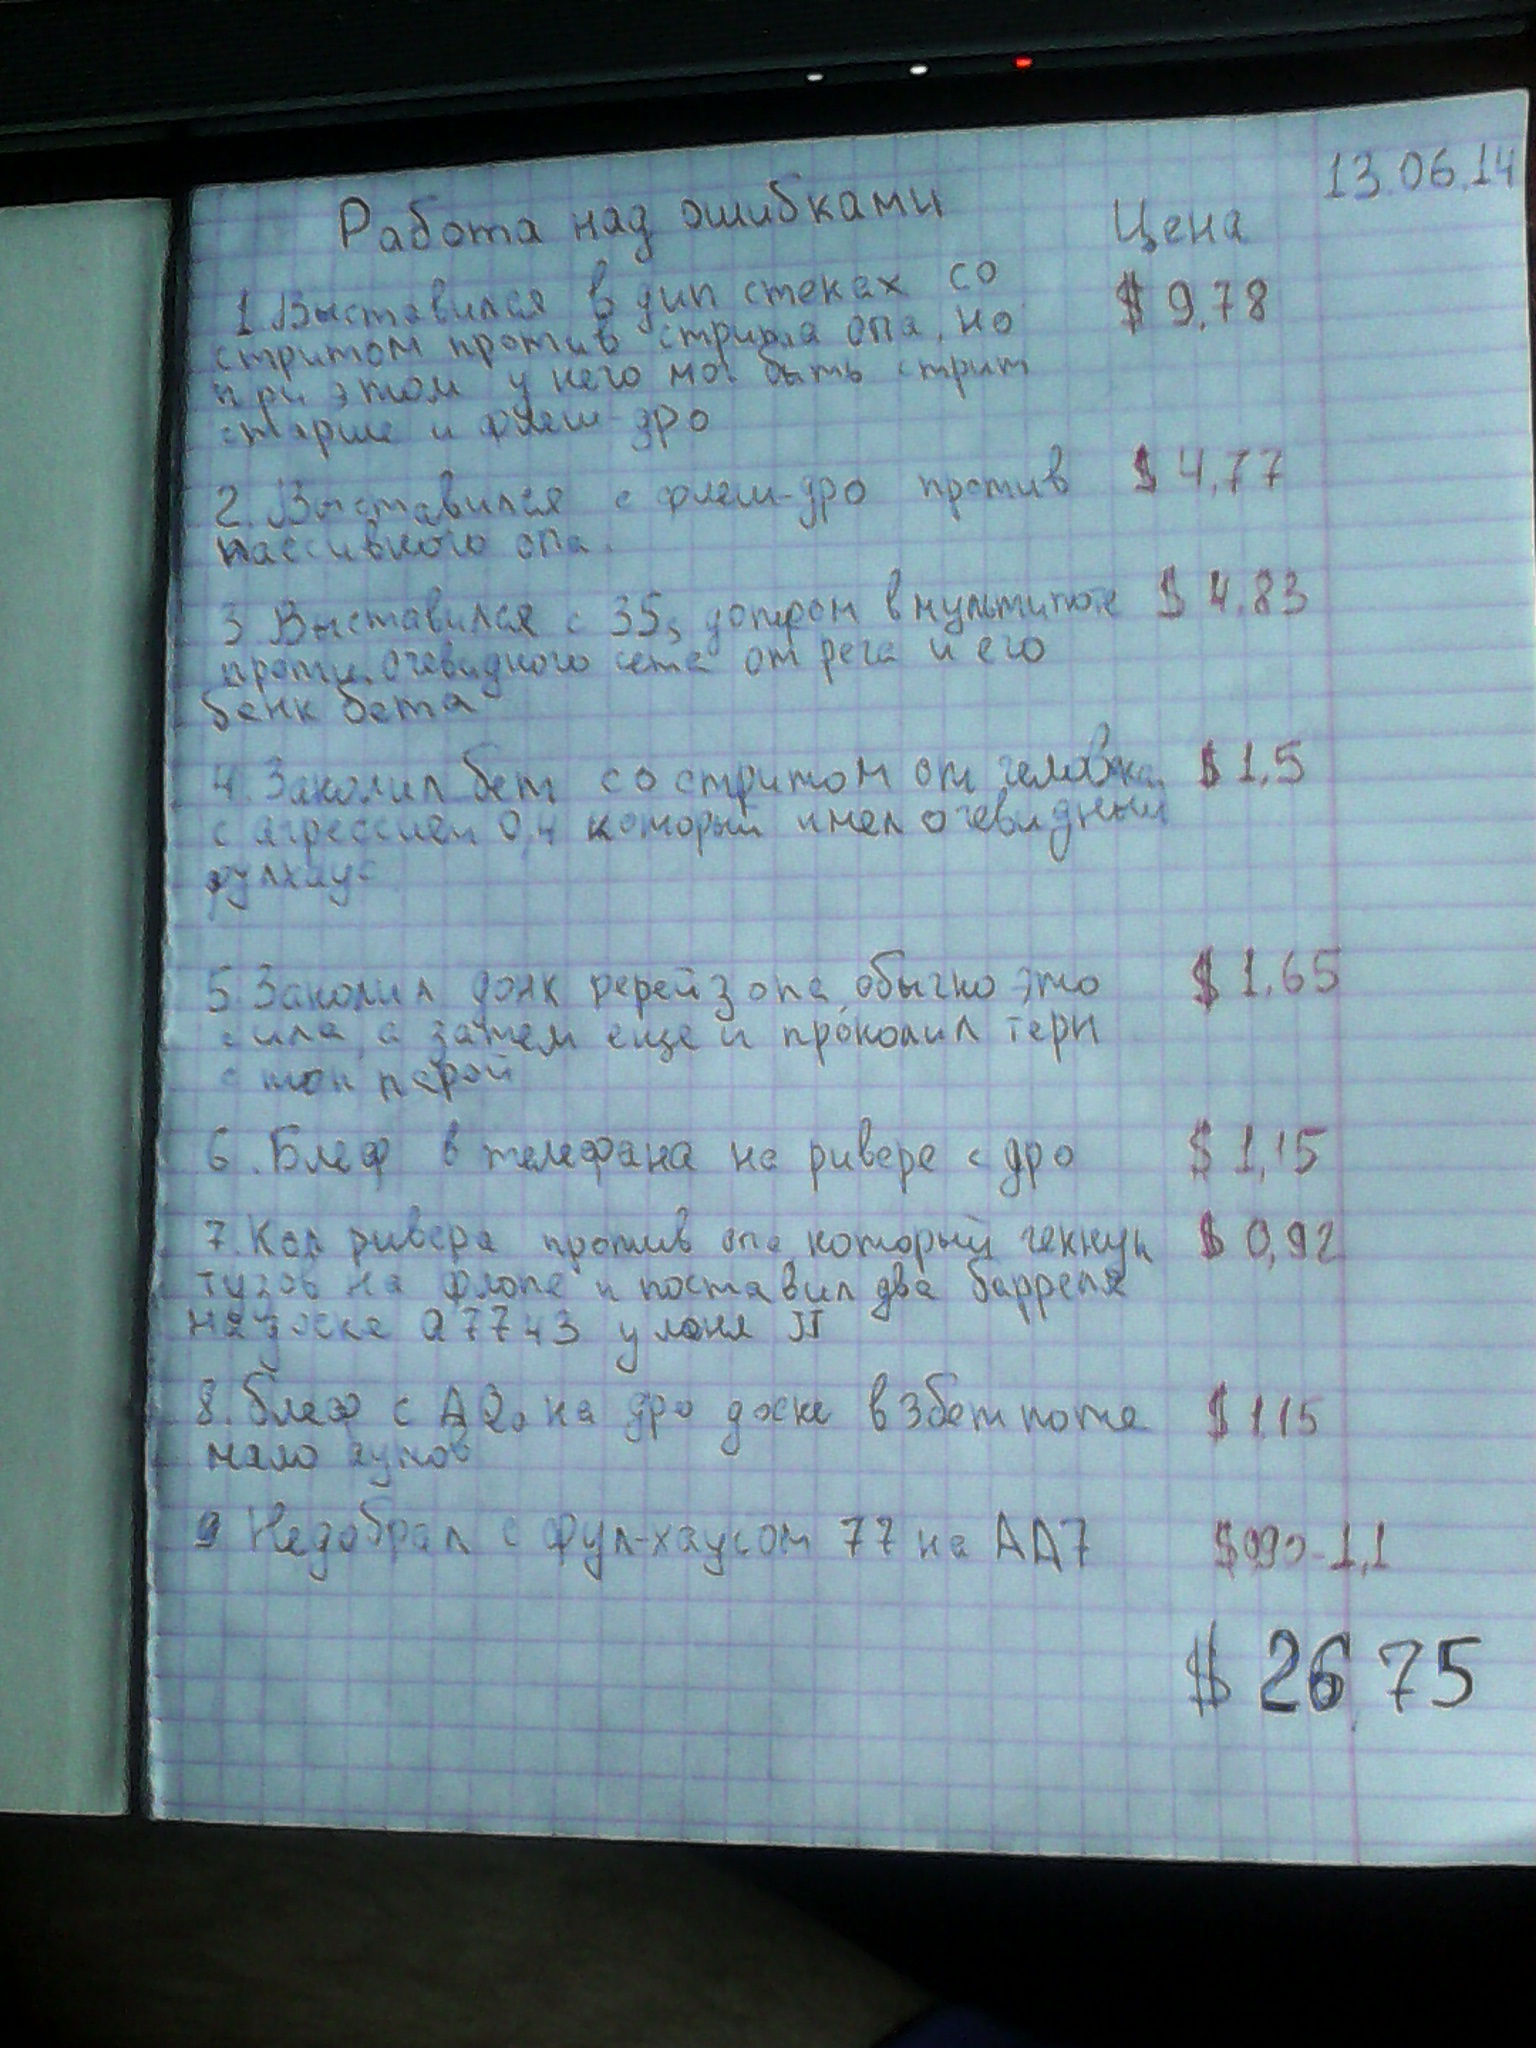 13.06.14
Работа над ошибками Цена
1. Выставился в дип стеках со $ 9,78
стритом против стрита опа, но
при этом у него мог быть стрит
старше и флеш-дро
2. Выставился с флеш-дро против $ 4,77
пассивного опа.
3 Выставился с 35s допром в мультипоте $ 4,83
против очевидного сета от рега и его
бенк бета
4. Заколил бет со стритом от человека $ 1,5
с агрессией 0,4 который имел очевидный
фулхаус
5 Заколил донк ререйз опа, обычно это $ 1,65
сила, а затем еще и проколил терн
с топ парой
6. Блеф в телефана на ривере с дро $ 1,15
7. Кол ривера против опа который чекнул $ 0,92
тузов на флопе и поставил два барреля
на доске а7743 у меня JJ
8. блеф с AQo на дро доске в 3бет поте $ 1,15
мало аутов
9 Недобрал с фул-хаусом 77 на АА7 $ 0,90-1,1
$ 26,75